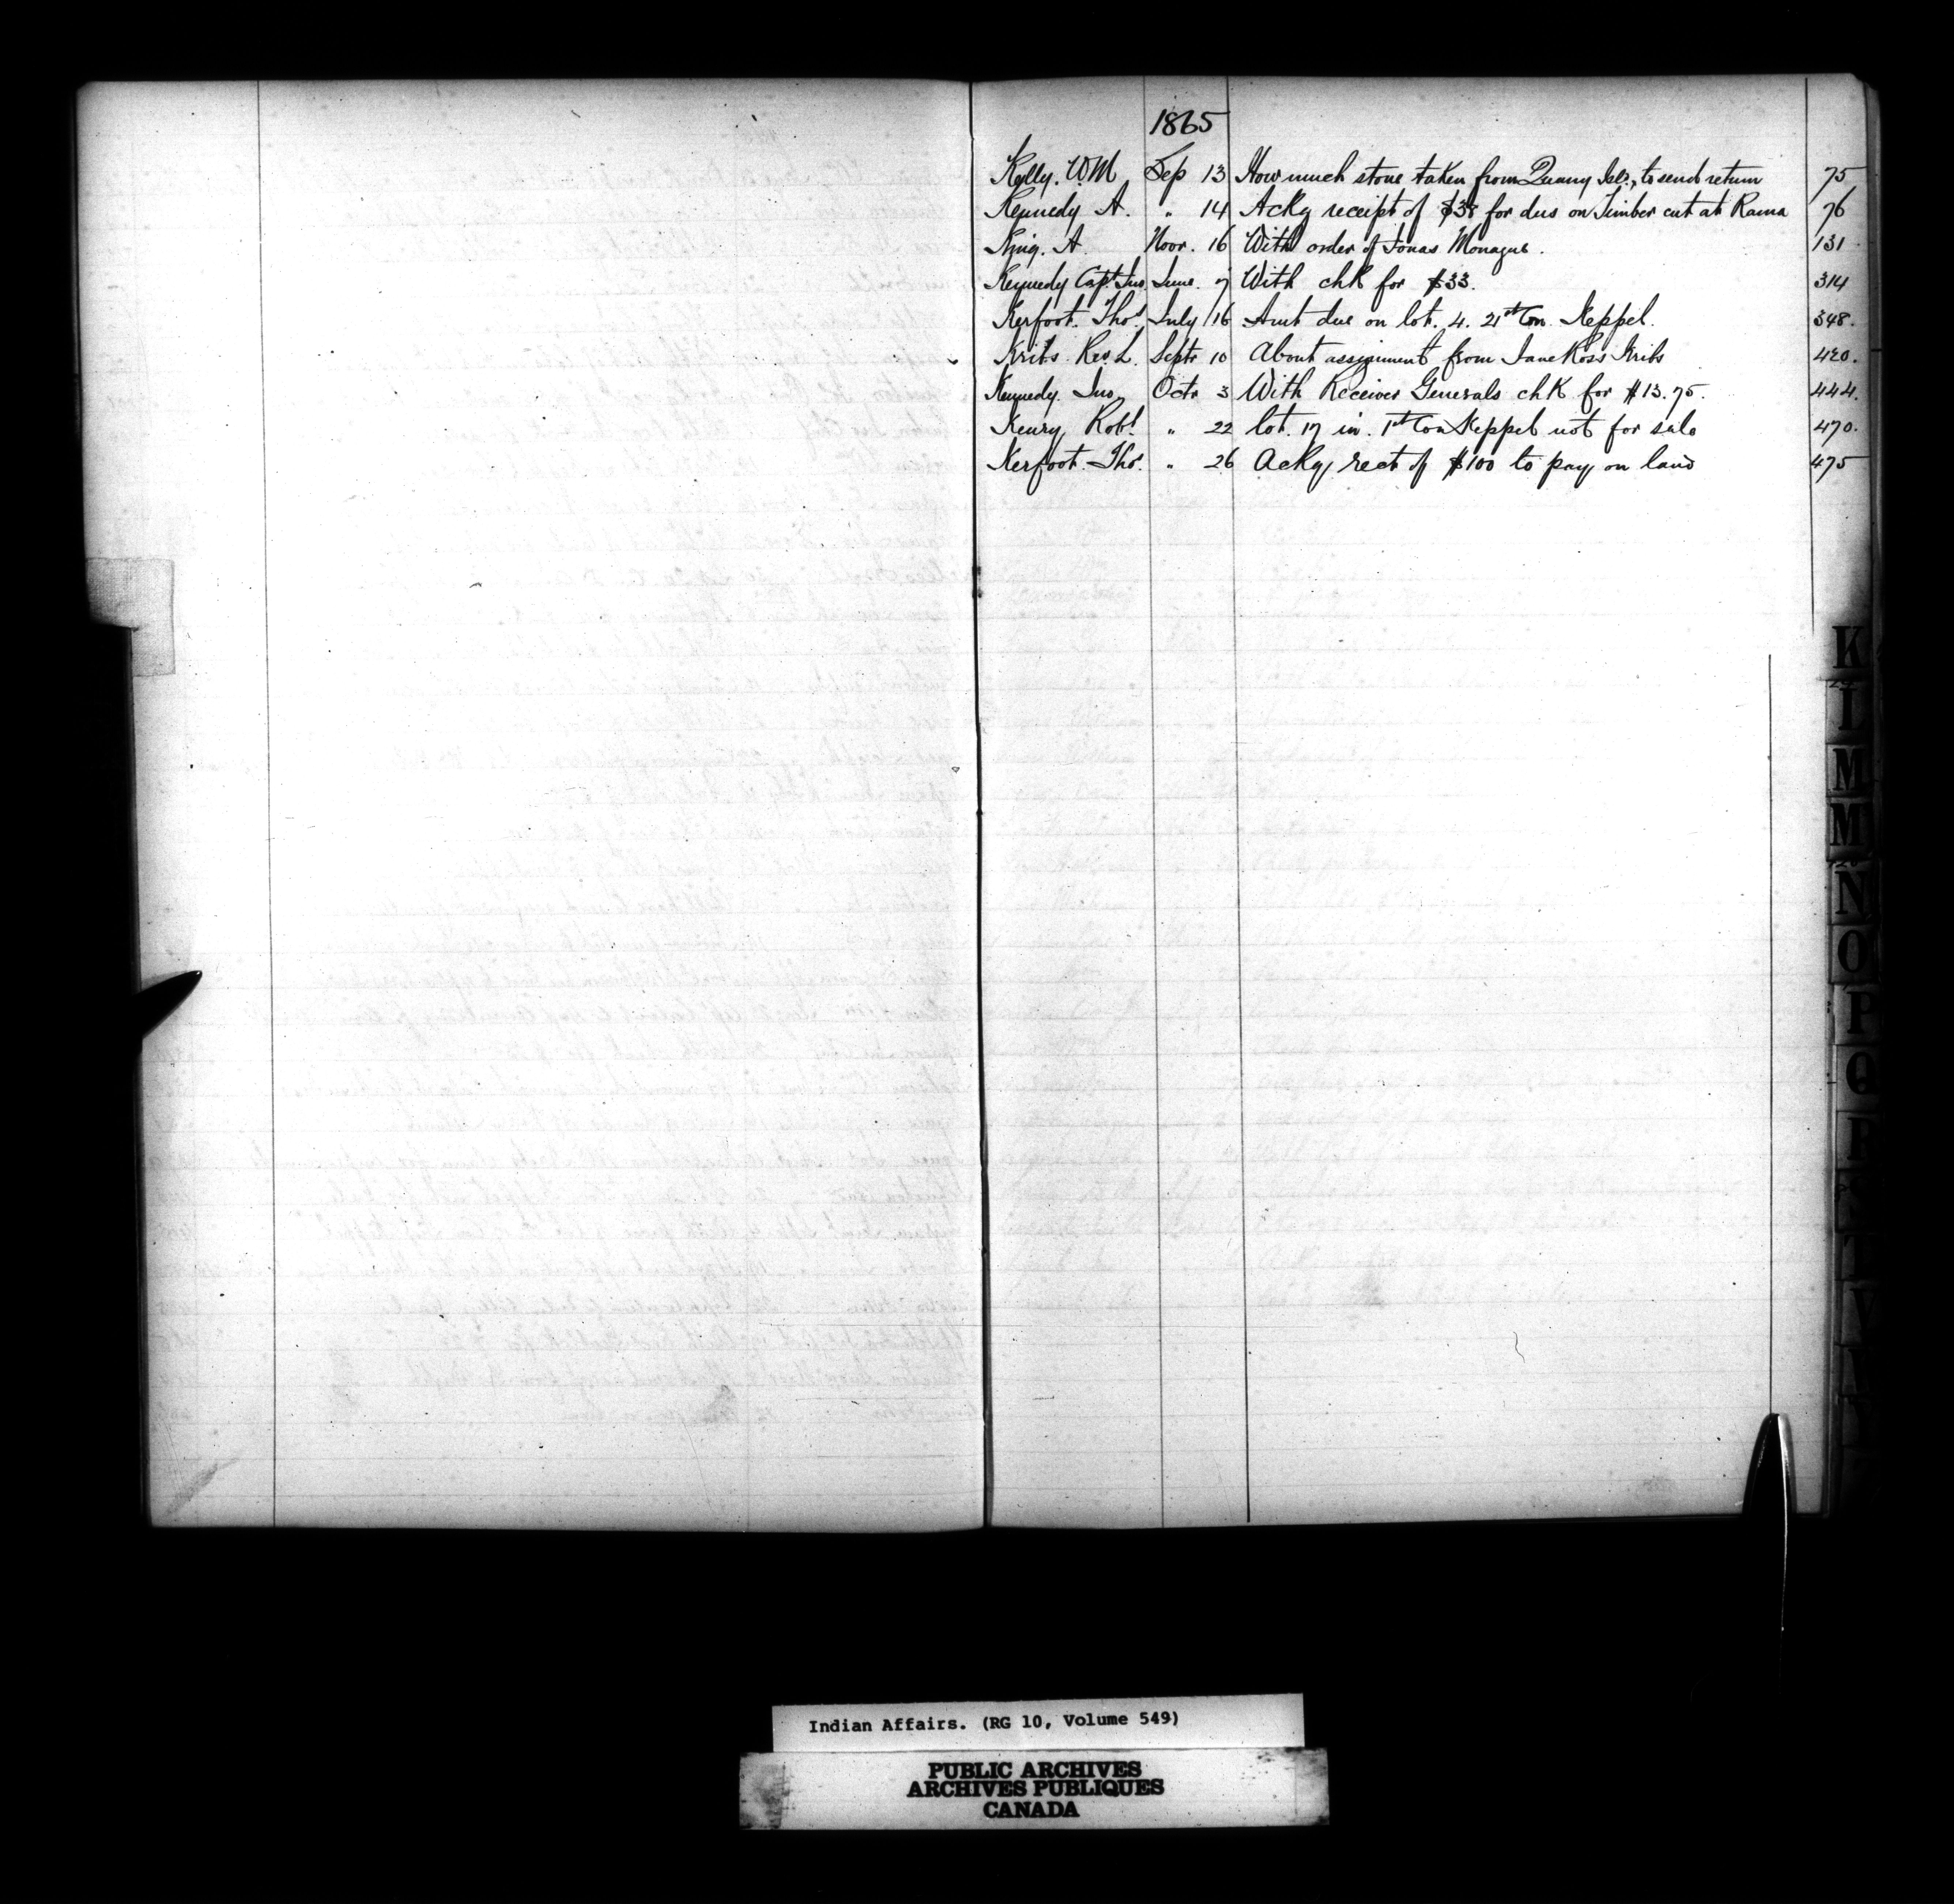 1865
Kelly. W.M Sep 13 How much stone taken from Quarry Isld., to send return 75
Kennedy A. " 14 Ackg receipt of $38 for dues on Timber cut at Rama 76
King. A Novr. 16 With order of Jonas Monague. 131
Kennedy Capt. Jno. June. 7 With chk for $33. 314
Kerfoot. Thos. July 16 Amt due on lot. 4. 21st Con. Keppel. 348.
Kribs Rev. L. Septr 10 About assignment from Jane Ross Kribs 420.
Kennedy. Jno. Octr 3 With Receiver Generals chk for $13.75. 444.
Kenry, Robt. " 22 lot. 17 in. 1st Con Keppel not for sale 470.
Kerfoot. Thos. " 26 Ackg rect of $100 to pay on land 475
K
L
M
M
N
O
P
Q
Indian Affairs. (RG 10, Volume 549)
PUBLIC ARCHIVES
ARCHIVES PUBLIQUES
CANADA